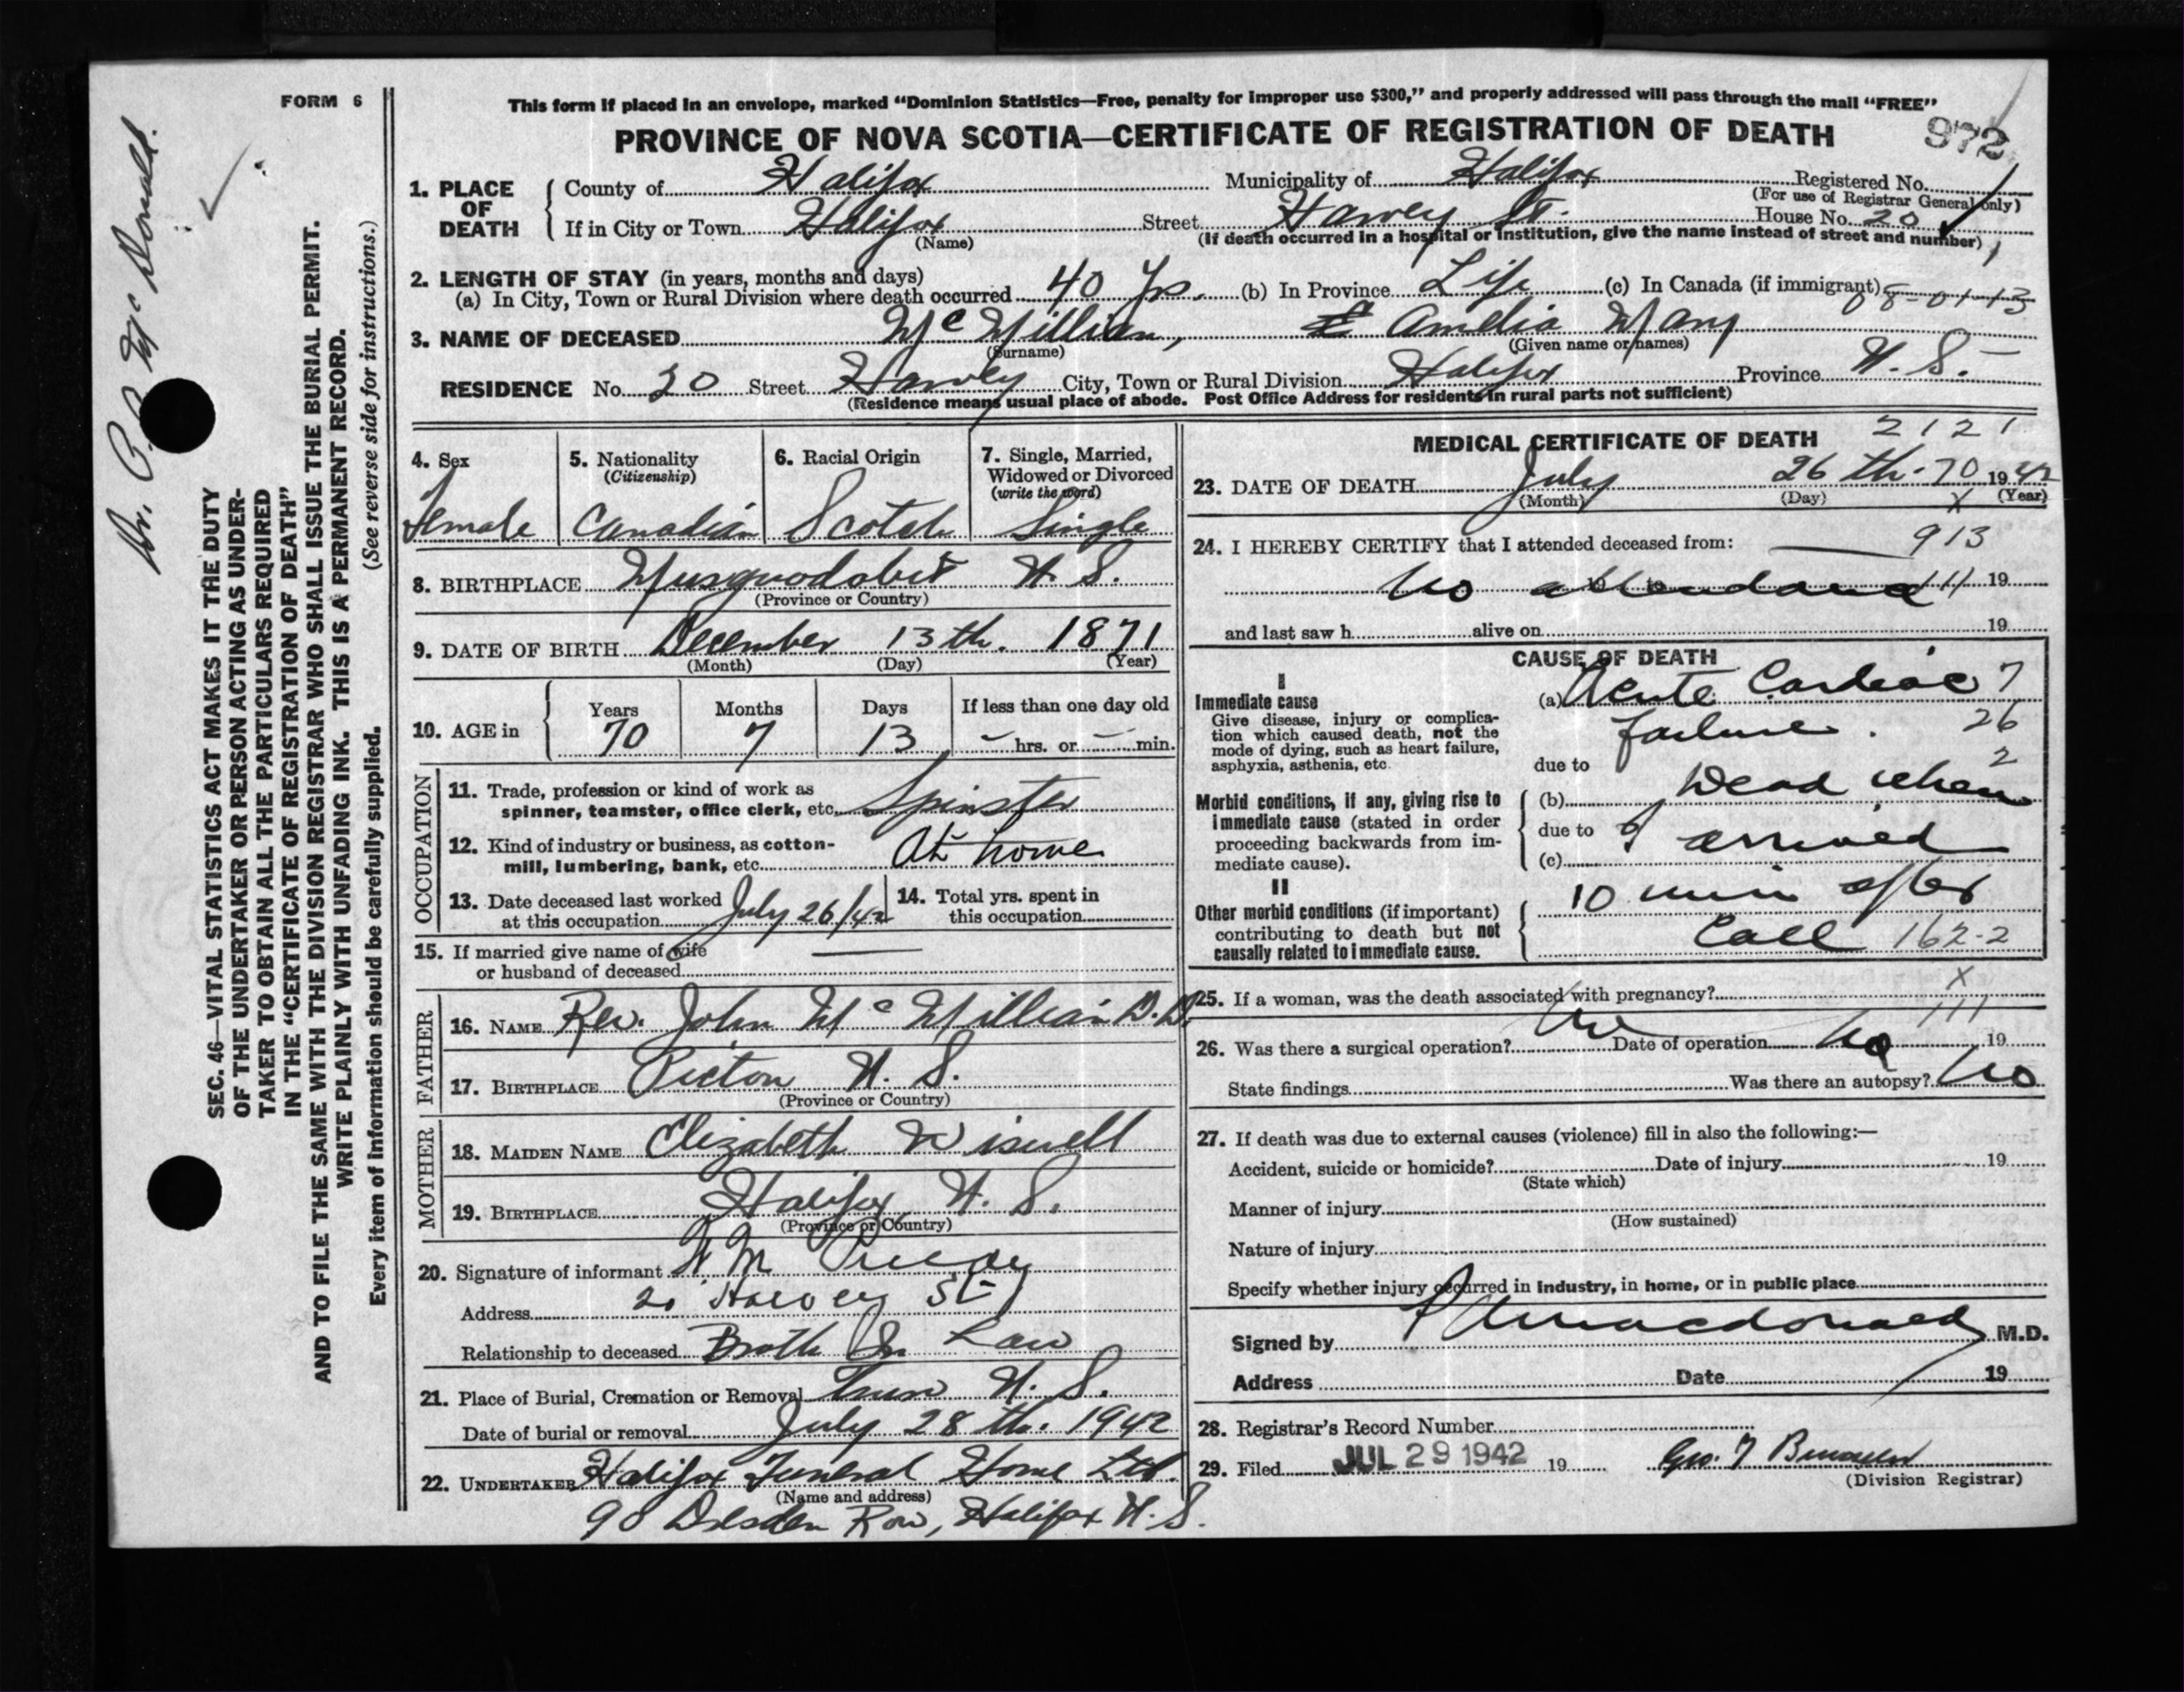 FORM 6
Dr. P. A. McDonald.
SEC. 46—VITAL STATISTICS ACT MAKES IT THE DUTY
OF THE UNDERTAKER OR PERSON ACTING AS UNDER-
TAKER TO OBTAIN ALL THE PARTICULARS REQUIRED
IN THE "CERTIFICATE OF REGISTRATION OF DEATH"
AND TO FILE THE SAME WITH THE DIVISION REGISTRAR WHO SHALL ISSUE THE BURIAL PERMIT.
WRITE PLAINLY WITH UNFADING INK. THIS IS A PERMANENT RECORD.
Every item of Information should be carefully supplied. (See reverse side for instructions.)
This form if placed in an envelope, marked "Dominion Statistics—Free, penalty for improper use $300," and properly addressed will pass through the mail "FREE"
PROVINCE OF NOVA SCOTIA—CERTIFICATE OF REGISTRATION OF DEATH 972
1. PLACE OF DEATH County of Halifax Municipality of Halifax Registered No.
(For use of Registrar General only)
If in City or Town Halifax Street Harvey St. House No. 20
(Name) (If death occurred in a hospital or institution, give the name instead of street and number)
2. LENGTH OF STAY (in years, months and days)
(a) In City, Town or Rural Division where death occurred 40 Yrs. (b) In Province Life (c) In Canada (if immigrant) 08-01-13
3. NAME OF DECEASED McMillian, Amelia Mary
(Surname) (Given name or names)
RESIDENCE No. 20 Street Harvey City, Town or Rural Division Halifax Province N. S.
(Residence means usual place of abode. Post Office Address for residents in rural parts not sufficient)
4. Sex 5. Nationality 6. Racial Origin 7. Single, Married,
(Citizenship) Widowed or Divorced
(write the word)
Female Canadian Scotch Single
8. BIRTHPLACE Musquodobit N. S.
(Province or Country)
9. DATE OF BIRTH December 13th. 1871
(Month) (Day) (Year)
10. AGE in Years Months Days If less than one day old
70 7 13 – hrs. or – min.
OCCUPATION
11. Trade, profession or kind of work as
spinner, teamster, office clerk, etc. Spinster
12. Kind of industry or business, as cotton-
mill, lumbering, bank, etc. At home
13. Date deceased last worked 14. Total yrs. spent in
at this occupation July 26/42 this occupation
15. If married give name of wife
or husband of deceased
FATHER
16. NAME Rev. John McMillian D.D.
17. BIRTHPLACE Pictou N. S.
(Province or Country)
MOTHER
18. MAIDEN NAME Elizabeth Wiswell
19. BIRTHPLACE Halifax, N. S.
(Province or Country)
20. Signature of informant
Address 20 Harvey St
Relationship to deceased Broth In Law
21. Place of Burial, Cremation or Removal Truro N. S.
Date of burial or removal July 28th. 1942
22. UNDERTAKER Halifax Funeral Home Ltd.
(Name and address)
90 Dresden Row, Halifax N. S.
MEDICAL CERTIFICATE OF DEATH 2121
23. DATE OF DEATH July 26th - 70 1942
(Month) (Day) X (Year)
24. I HEREBY CERTIFY that I attended deceased from: 913
No attendance 19 to 111 19
and last saw h alive on 19
CAUSE OF DEATH
I
Immediate cause (a) Acute Cardiac 7
Give disease, injury or complica-
tion which caused death, not the failure. 26
mode of dying, such as heart failure,
asphyxia, asthenia, etc. due to 2
Morbid conditions, if any, giving rise to (b) Dead when
immediate cause (stated in order due to I arrived
proceeding backwards from im-
mediate cause). (c)
II 10 min after
Other morbid conditions (if important)
contributing to death but not Call 162-2
causally related to immediate cause.
25. If a woman, was the death associated with pregnancy? X
No 111
26. Was there a surgical operation? Date of operation No 19
State findings Was there an autopsy? No
27. If death was due to external causes (violence) fill in also the following:—
Accident, suicide or homicide? Date of injury 19
(State which)
Manner of injury
(How sustained)
Nature of injury
Specify whether injury occurred in industry, in home, or in public place
Signed by P A Macdonald M.D.
Address Date 19
28. Registrar's Record Number
29. Filed JUL 29 1942 19 Geo. T
(Division Registrar)